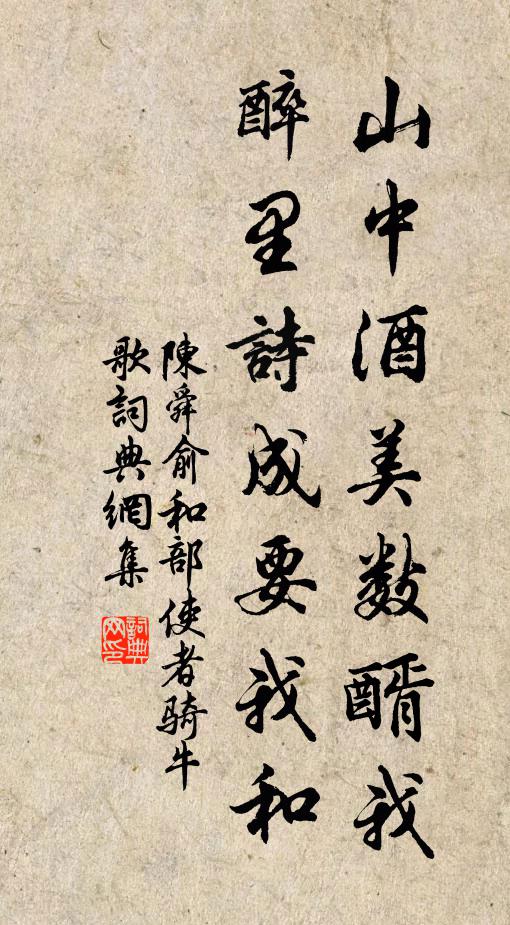 山中酒美數醑我
醉里詩成要我和
陳舜俞和部使者騎牛
歌詞典網集
詞典
网印